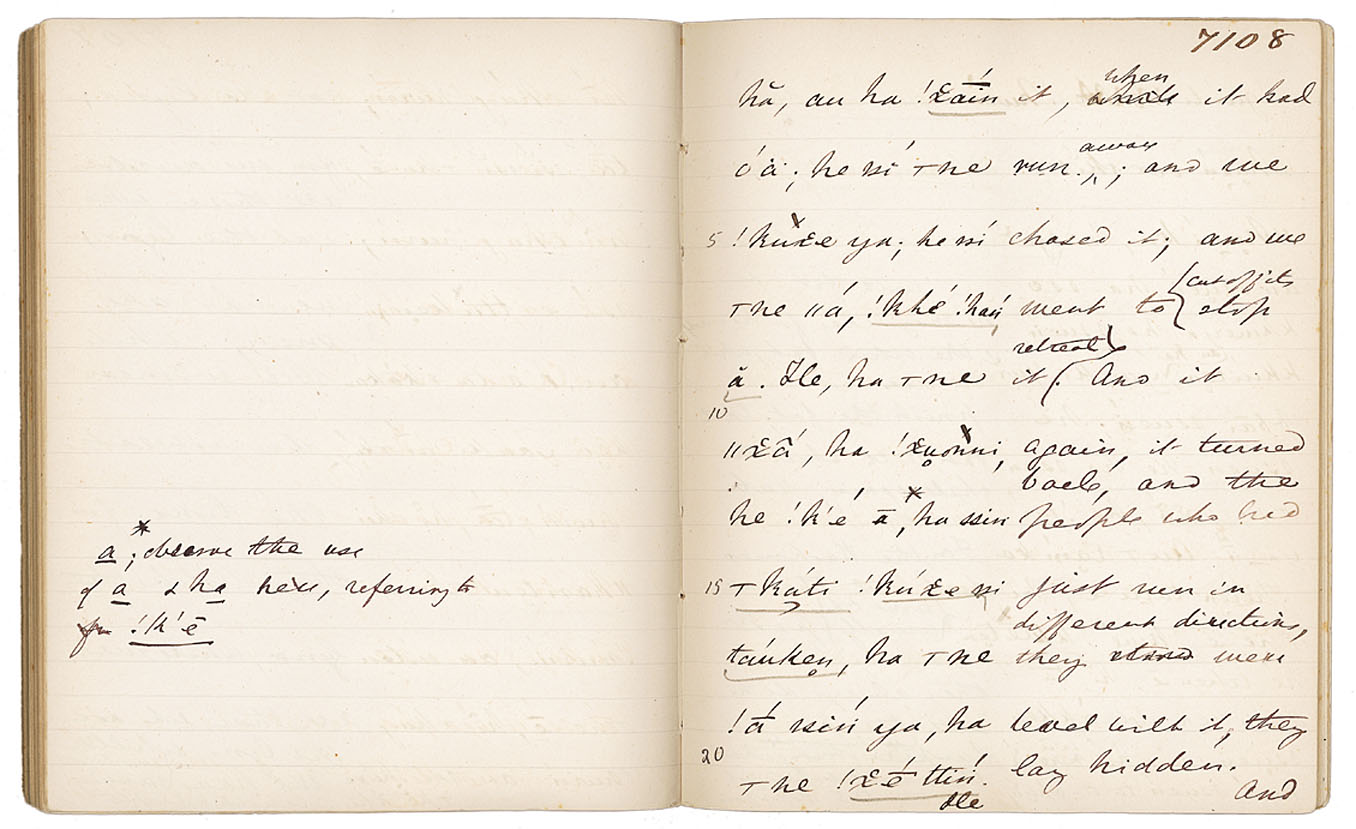 * a; observe the use
of a & ha here, referring to
!k'ē
7108
hă, au ha !χāín it, when it had
óä; he si ⊤ne run away; and we
5 !kúχe ya; he si chased it; and we
⊤ne ǁá, !khé !haú went to {cut off its stop
ă. He, ha ⊤ne retreat} it (. And it
10
ǁχâ, ha !χuonni, again, it turned
back, and the
he !k'é ā*, ha ssin people who had
15 ⊤káti !kúχe ssi just run in
different directions,
táuken, ha ⊤ne they were
!ā́ ssiń ya, ha level with it, they
20
⊤ne !χé ttiń. lay hidden.
He And